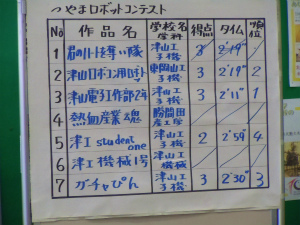 つやまロボットコンテスト
No 作品名 学校名 学科 得点 タイム 順位
1 君のハートを奪い隊 津山工 子機 3 2'19"
2 津山ロボコン用ロボット 東岡山工 子機 3 2'19" 2
3 津山電子工作部2年 津山工 子機 3 2'11" 1
4 熱血産業魂 勝間田 産工学
5 津工student one 津山工 子機 2 2'59" 4
6 津工機械1号 津山工 機械
7 ガチャぴん 津山工 子機 3 2'30" 3